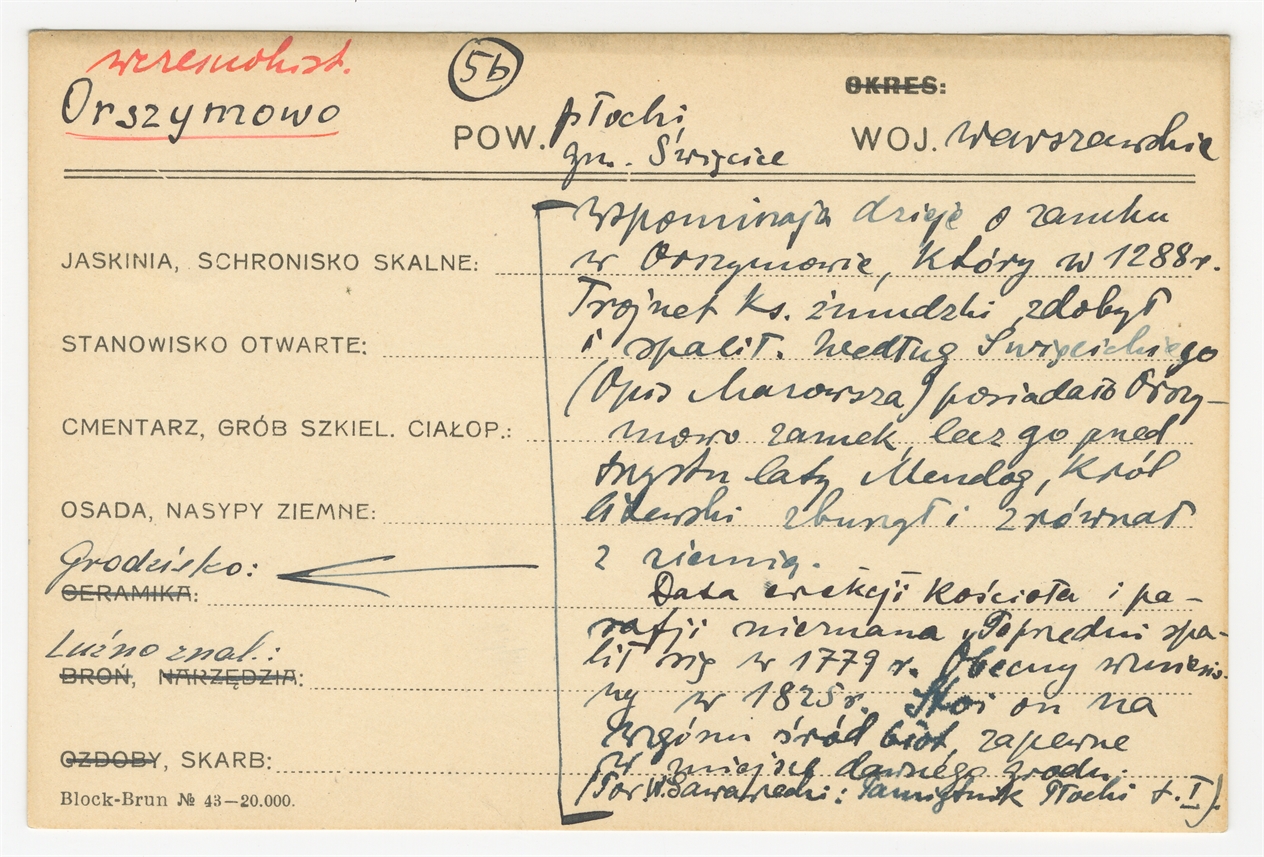 wczesnohist.
Orszymowo
5b
OKRES:
POW. płocki
gm. Święcice
WOJ. warszawskie
JASKINIA, SCHRONISKO SKALNE:
STANOWISKO OTWARTE:
CMENTARZ, GRÓB SZKIEL. CIAŁOP.:
OSADA, NASYPY ZIEMNE:
Grodzisko:
CERAMIKA:
Luźno znal.:
BROŃ, NARZĘDZIA:
OZDOBY, SKARB:
Block-Brun № 43—20.000.
Wspominają dzieje o zamku
w Orszymowie, który w 1288 r.
Trojnet ks. żmudzki zdobył
i spalił. Według Święcickiego
(Opis Mazowsza) posiadało Orszy-
mowo zamek, lecz go przed
trzystu laty Mendog, król
litewski zburzył i zrównał
z ziemią.
Data erekcji kościoła i pa-
rafji nieznana. Poprzedni spa-
lił się w 1779 r. Obecny wzniesio-
ny w 1825 r. Stoi on na
wzgórzu śród błot, zapewne
w miejscu dawnego grodu.
(Por. : Pamiętnik Płocki t. I).